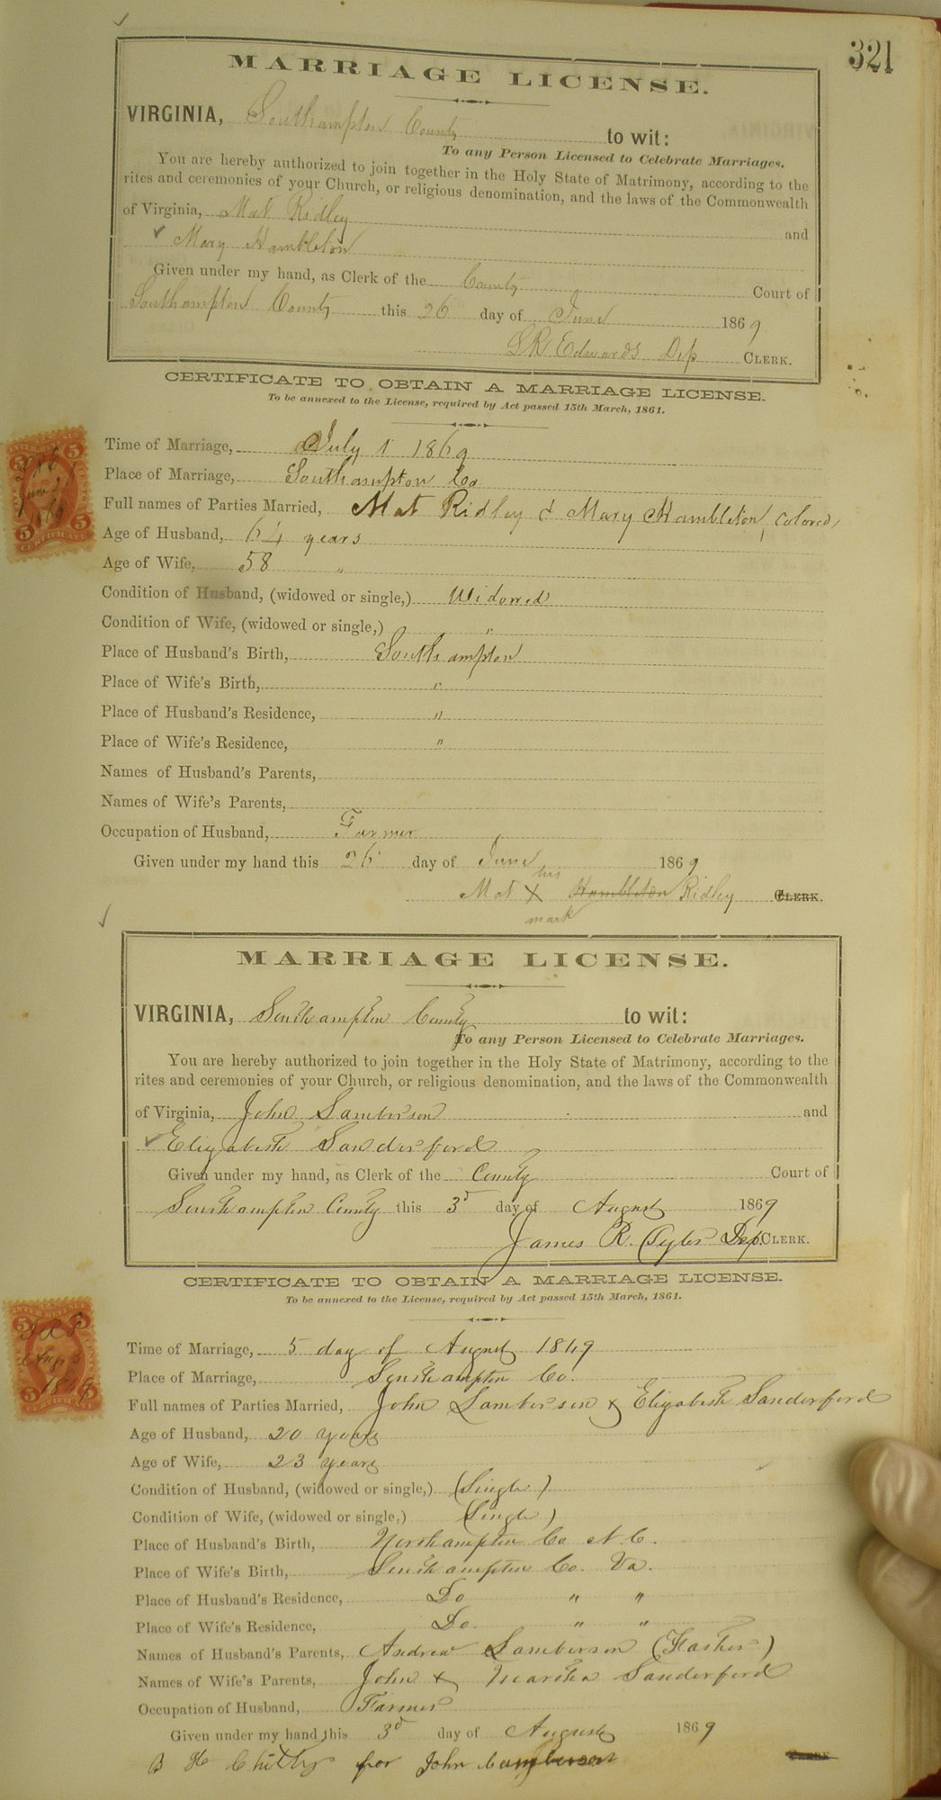 321
MARRIAGE LICENSE.
VIRGINIA, Southampton County to wit:
To any Person Licensed to Celebrate Marriages.
You are hereby authorized to join together in the Holy State of Matrimony, according to the
rites and ceremonies of your Church, or religious denomination, and the laws of the Commonwealth
of Virginia, Mat Ridley and
Mary Hambleton
Given under my hand, as Clerk of the County Court of
Southampton County this 26 day of June 1869
L R Edwards Dep CLERK.
CERTIFICATE TO OBTAIN A MARRIAGE LICENSE.
To be annexed to the License, required by Act passed 15th March, 1861.
Time of Marriage, July 1 1869
Place of Marriage, Southampton Co
Full names of Parties Married, Mat Ridley & Mary Hambleton, colored,
Age of Husband, 64 years
Age of Wife, 58 "
Condition of Husband, (widowed or single,) Widowed
Condition of Wife, (widowed or single,) "
Place of Husband's Birth, Southampton
Place of Wife's Birth, "
Place of Husband's Residence, "
Place of Wife's Residence, "
Names of Husband's Parents,
Names of Wife's Parents,
Occupation of Husband, Farmer
Given under my hand this 26 day of June 1869
his
Mat X Hambleton Ridley CLERK.
mark
MARRIAGE LICENSE.
VIRGINIA, Southampton County to wit:
To any Person Licensed to Celebrate Marriages.
You are hereby authorized to join together in the Holy State of Matrimony, according to the
rites and ceremonies of your Church, or religious denomination, and the laws of the Commonwealth
of Virginia, John Lamberson and
Elizabeth Sanderford
Given under my hand, as Clerk of the County Court of
Southampton County this 3d day of August 1869
James R. Tyler Dep. CLERK.
CERTIFICATE TO OBTAIN A MARRIAGE LICENSE.
To be annexed to the License, required by Act passed 15th March, 1861.
Time of Marriage, 5 day of August 1869
Place of Marriage, Southampton Co.
Full names of Parties Married, John Lamberson & Elizabeth Sanderford
Age of Husband, 20 years
Age of Wife, 23 years
Condition of Husband, (widowed or single,) (Single)
Condition of Wife, (widowed or single,) (Single)
Place of Husband's Birth, Northampton Co N C.
Place of Wife's Birth, Southampton Co. Va.
Place of Husband's Residence, Do " "
Place of Wife's Residence, Do. " "
Names of Husband's Parents, Andrew Lamberson (Father)
Names of Wife's Parents, John & Martha Sanderford
Occupation of Husband, Farmer
Given under my hand this 3d day of August 1869
B H Chitty for John Lamberson